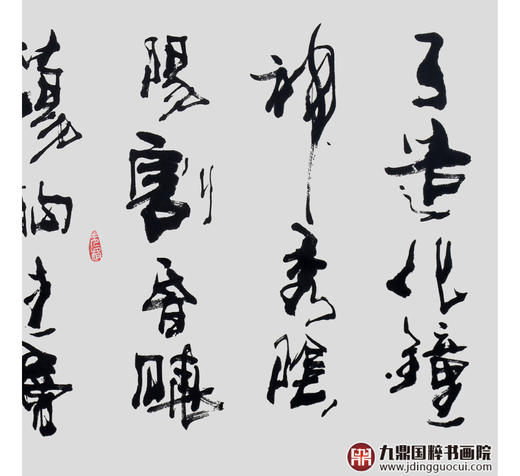 了造化鍾
神秀陰
陽割昏曉
蕩胸生
九鼎国粹书画院
www.jdingguocui.com